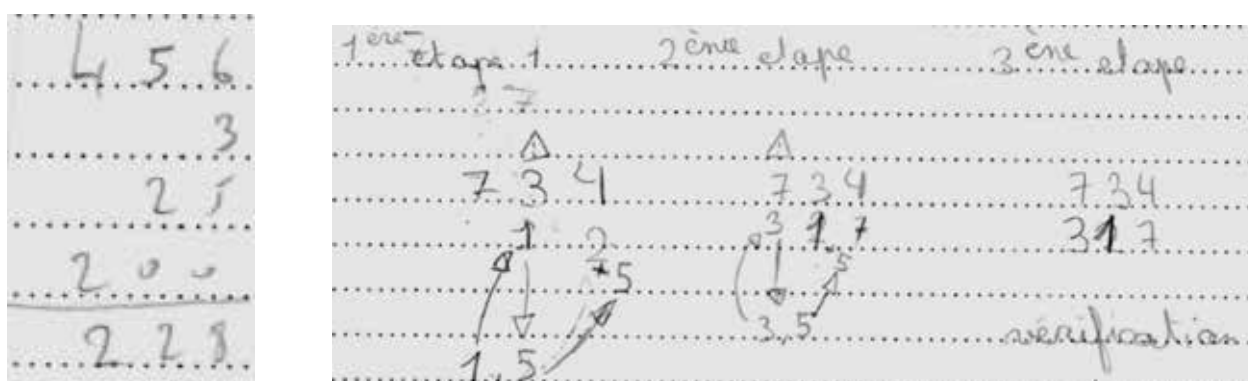 4 5 6
3
2 5
2 0 0
2 2 8
1ère etape 1 2ème etape 3ème etape
7
7 3 4 7 3 4 7 3 4
1 2 3 1 7 3 1 7
+5 5
3,5
1,5
vérification